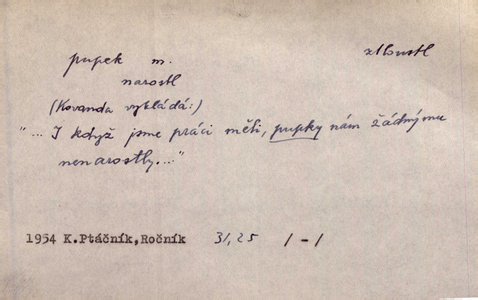 pupek m. ztloustl
narostl
(Kovanda vykládá:)
"... I když jsme práci měli, pupky nám žádnýmu
nenarostly..."
1954 K.Ptáčník,Ročník 31,25 /-/